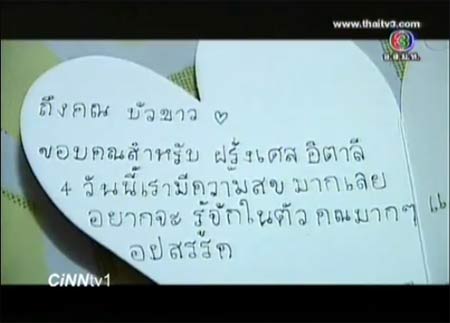 www.thaitv3.com
3
อ.ส.ม.ท.
ถึงคุณ บัวขาว ♡
ขอบคุณสำหรับ ฝรั่งเศส อิตาลี
4 วันนี้เรามีความสุข มากเลย
อยากจะ รู้จักในตัว คุณมากๆ
CiNNtv1